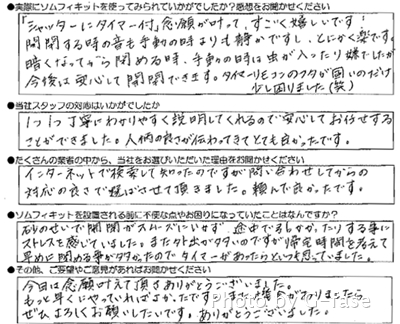 ●実際にソムフィキットを使ってみられていかがでしたか?感想をお聞かせください
「シャッターにタイマー付」念願が叶って、すごく嬉しいです!
開閉する時の音も手動の時よりも静かですし、とにかく楽です。
暗くなってから閉める時、手動の時は虫が入ったり嫌でしたが
今後は安心して開閉できます。タイマーリモコンのフタが固いのだけ
少し困りました(笑)
●当社スタッフの対応はいかがでしたか
1つ1つ丁寧にわかりやすく説明してくれるので安心してお任せする
ことができました。人柄の良さが伝わってきてとても良かったです。
●たくさんの業者の中から、当社をお選びいただいた理由をお聞かせください
インターネットで検索して知ったのですが問い合わせしてからの
対応の良さで選ばさせて頂きました。頼んで良かったです。
●ソムフィキットを設置される前に不便な点やお困りになっていたことはなんですか?
砂のせいで開閉がスムーズにいかず 途中で引っかかったりする事に
ストレスを感じていました。また夕方出かけたいのですが帰宅時間を考えて
早めに閉める事が多かったのでタイマーがあったらといつも思っていました。
●その他、ご要望やご意見があればお聞かせください
今日は念願叶えて頂きありがとうございました。
もっと早くにやっていればよかったです。また必要がありましたら
ぜひよろしくお願いしたいです。ありがとうございました。